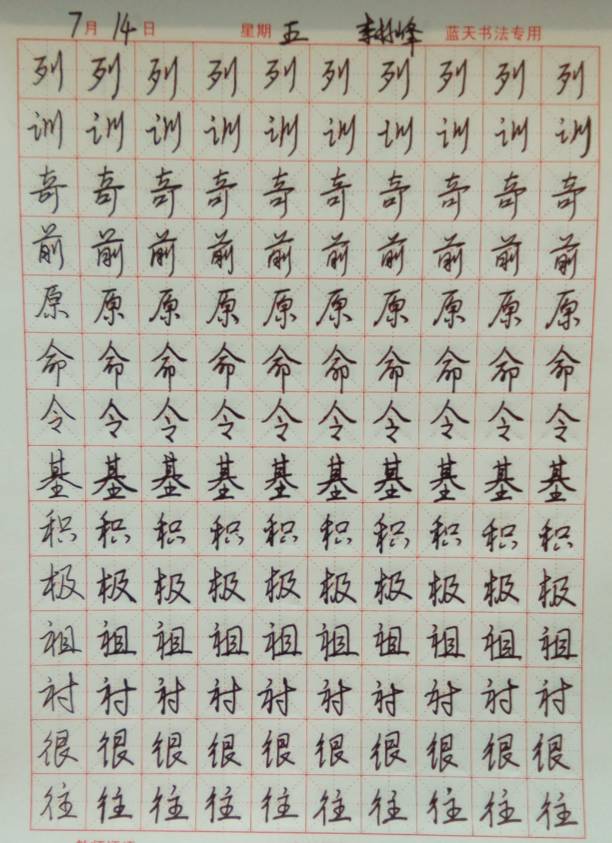 7月14日 星期五 李林峰 蓝天书法专用
列列列列列列列列列列
训训训训训训训训训训
奇奇奇奇奇奇奇奇奇奇
前前前前前前前前前前
原原原原原原原原原原
命命命命命命命命命命
令令令令令令令令令令
基基基基基基基基基基
积积积积积积积积积积
极极极极极极极极极极
祖祖祖祖祖祖祖祖祖祖
衬衬衬衬衬衬衬衬衬衬
很很很很很很很很很很
往往往往往往往往往往